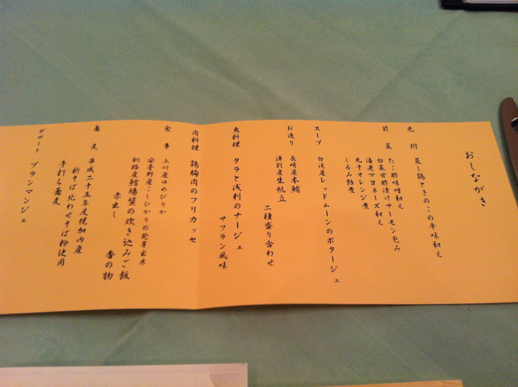 おしながき
先附 蒸し鶏ときのこの辛味和え
前菜 たこ酢味噌和え
白菜甘酢漬けサーモン包み
海老マヨネーズ和え
九十オレンジ煮
くるみ飴煮
スープ 白没産レッドムーンのポタージュ
お造り 長崎産本鮪
湧別産生帆立
二種盛り合わせ
魚料理 タラと浅利のナージュ
サフラン風味
肉料理 鶏胸肉のフリカッセ
食事 上川産ゆめぴりか
安曇野産こしひかりの発芽玄米
釧路産鱈場蟹の炊き込みご飯
赤出し
香の物
蕎麦 平成二十五年度幌加内産
新そば 北わせそば粉使用
手打ち蕎麦
デザート ブランマンジェ